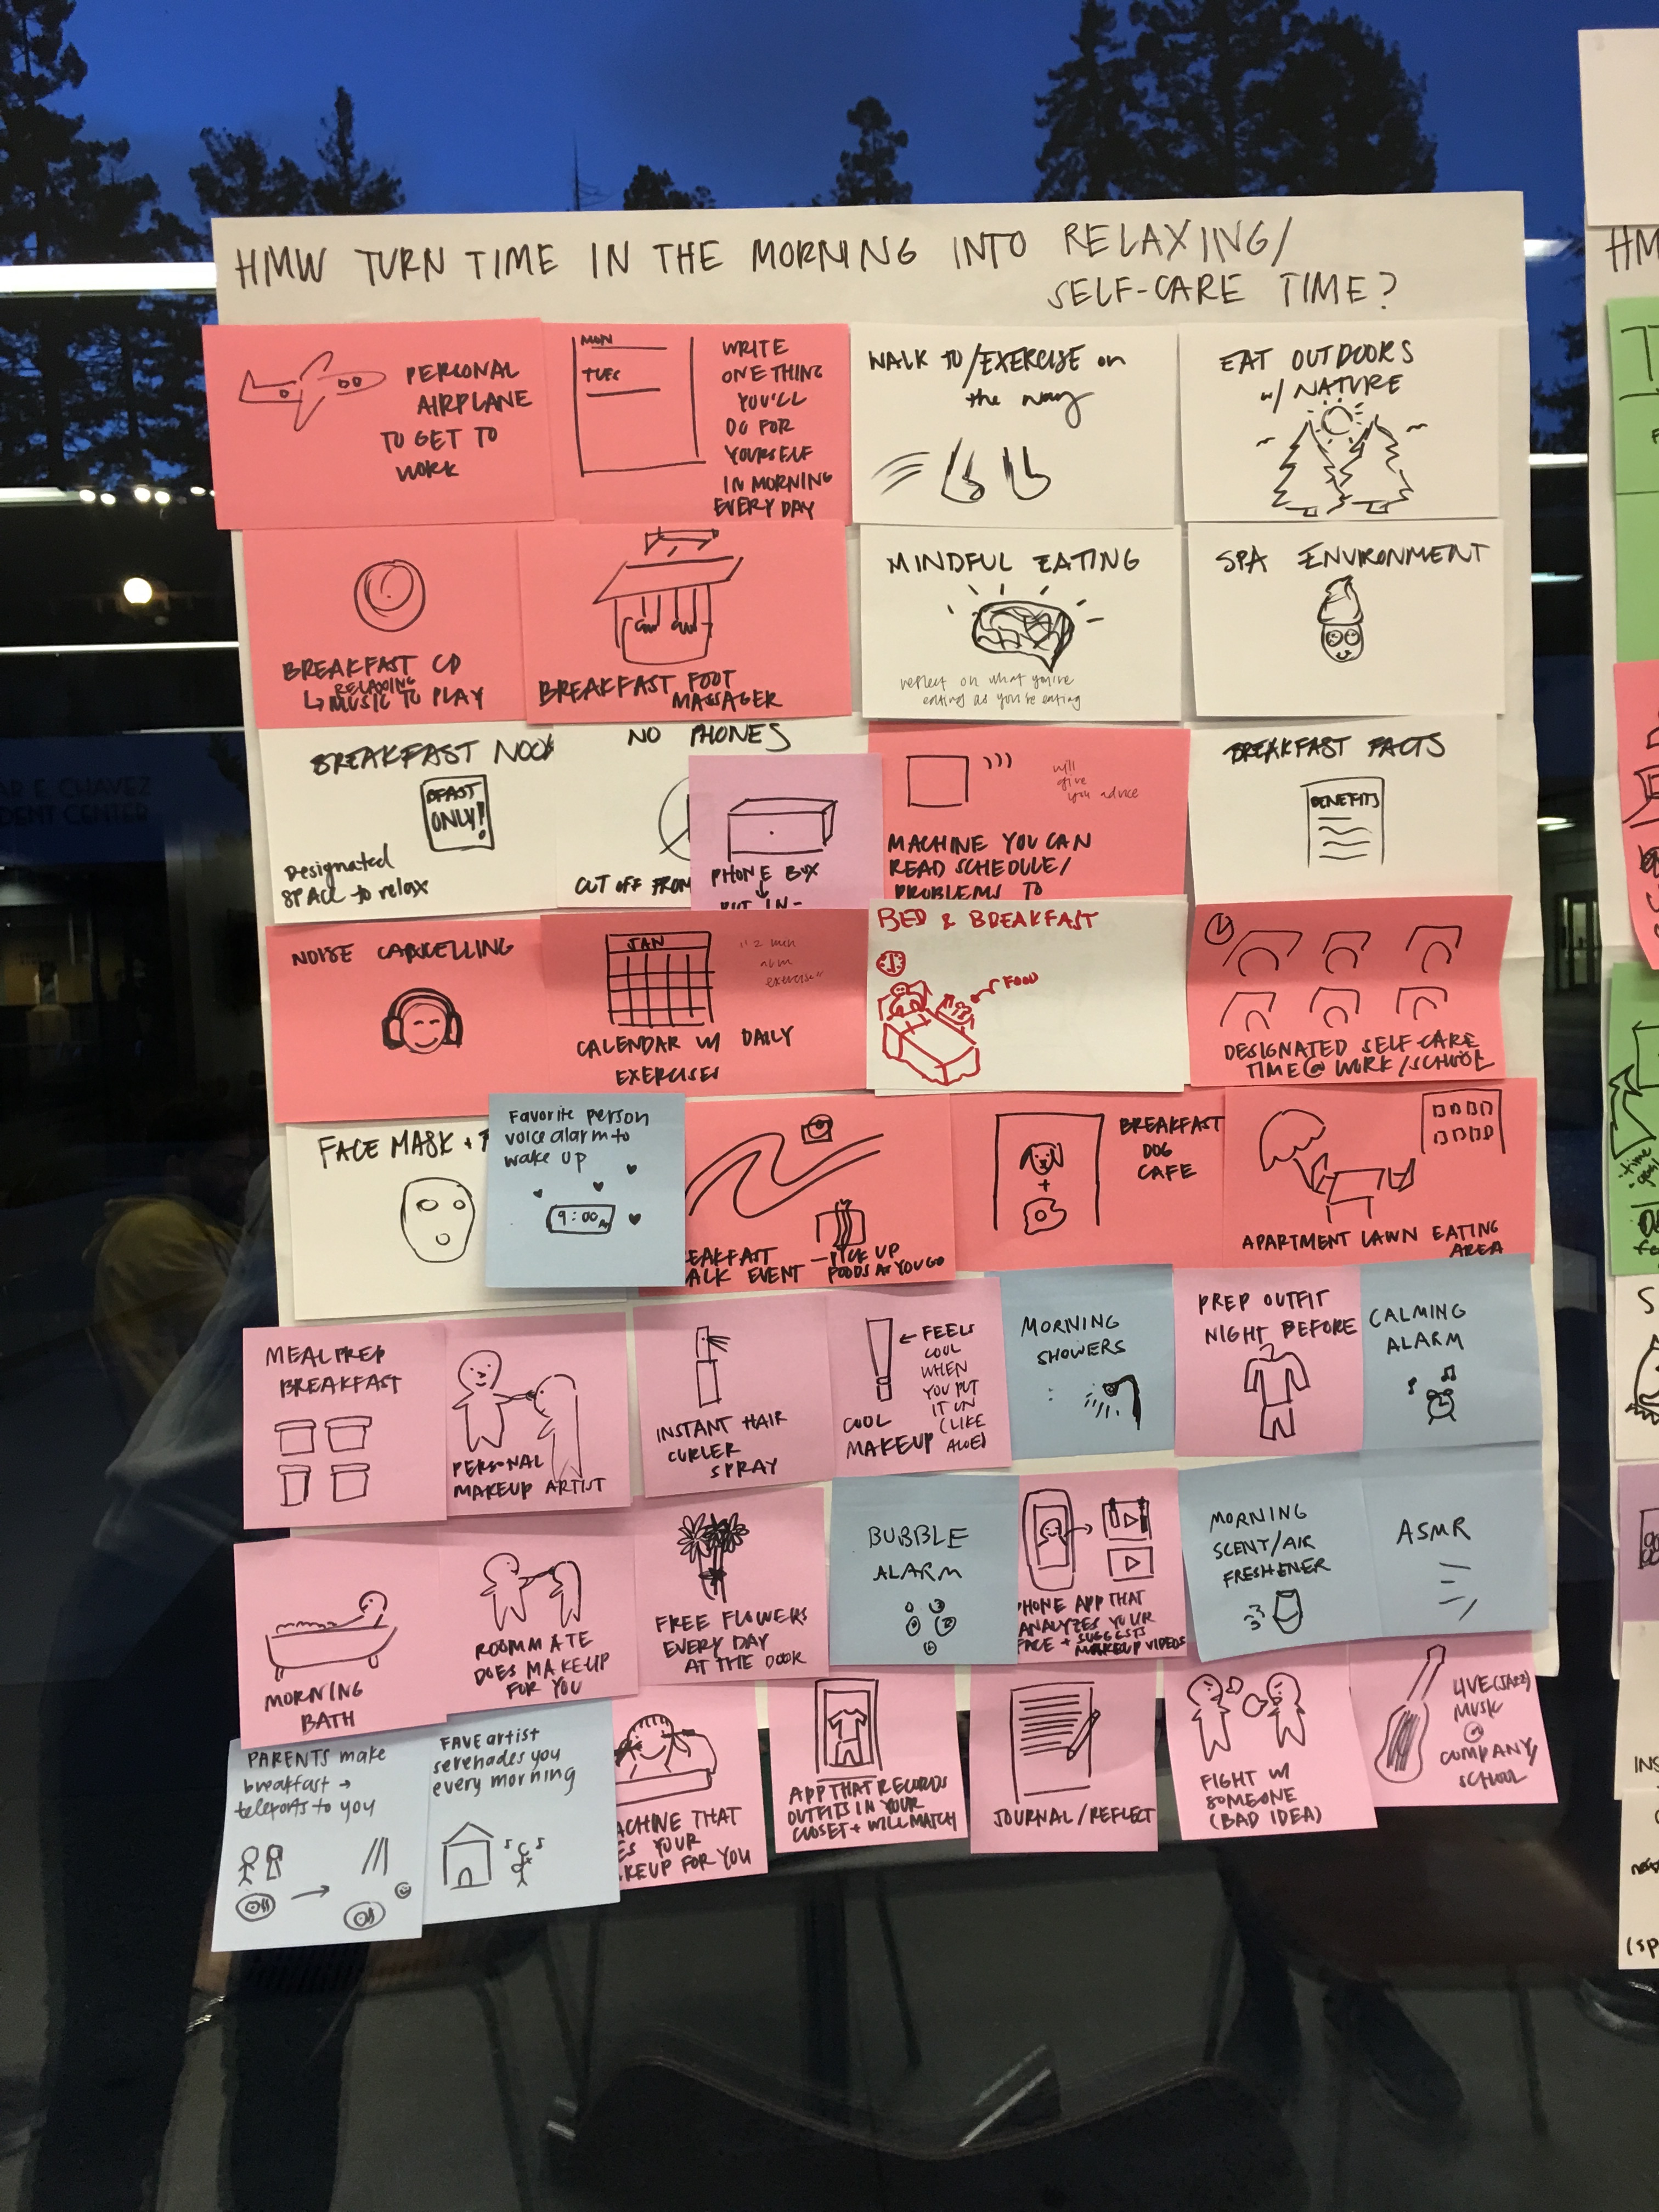 HMW TURN TIME IN THE MORNING INTO RELAXING/
SELF-CARE TIME?
PERSONAL
AIRPLANE
TO GET TO
WORK
MON
TUES
WRITE
ONE THING
YOU'LL
DO FOR
YOURSELF
IN MORNING
EVERY DAY
WALK TO/EXERCISE on
the way
EAT OUTDOORS
w/ NATURE
BREAKFAST CD
RELAXING
↳ MUSIC TO PLAY
BREAKFAST FOOT
MASSAGER
MINDFUL EATING
reflect on what you're
eating as you're eating
SPA ENVIRONMENT
BREAKFAST NOOK
BFAST
ONLY!
Designated
SPACE to relax
NO PHONES
CUT OFF FROM
PHONE BOX
↓
PUT IN-
will
give
you advice
MACHINE YOU CAN
READ SCHEDULE/
PROBLEMS TO
BREAKFAST FACTS
BENEFITS
NOISE CANCELLING
JAN
"2 min
exercise"
CALENDAR W/ DAILY
EXERCISES
BED & BREAKFAST
FOOD
DESIGNATED SELF-CARE
TIME @ WORK/SCHOOL
FACE MASK +
Favorite person
voice alarm to
wake up
9:00
EAKFAST
ALK EVENT
— PICK UP
FOODS AS YOU GO
BREAKFAST
DOG
CAFE
+
APARTMENT LAWN EATING
AREA
MEAL PREP
BREAKFAST
PERSONAL
MAKEUP ARTIST
INSTANT HAIR
CURLER
SPRAY
← FEELS
COOL
WHEN
YOU PUT
IT ON
(LIKE
ALOE)
COOL
MAKEUP
MORNING
SHOWERS
PREP OUTFIT
NIGHT BEFORE
CALMING
ALARM
MORNING
BATH
ROOMMATE
DOES MAKEUP
FOR YOU
FREE FLOWERS
EVERY DAY
AT THE DOOR
BUBBLE
ALARM
PHONE APP THAT
ANALYZES YOUR
FACE + SUGGESTS
MAKEUP VIDEOS
MORNING
SCENT/AIR
FRESHENER
ASMR
PARENTS make
breakfast →
teleports to you
FAVE artist
serenades you
every morning
ACHINE THAT
ES YOUR
KEUP FOR YOU
APP THAT RECORDS
OUTFITS IN YOUR
CLOSET + WILL MATCH
JOURNAL/REFLECT
FIGHT W/
SOMEONE
(BAD IDEA)
LIVE (JAZZ)
MUSIC
@
COMPANY/
SCHOOL
HM
INS
(sp
AR E. CHAVEZ
DENT CENTER